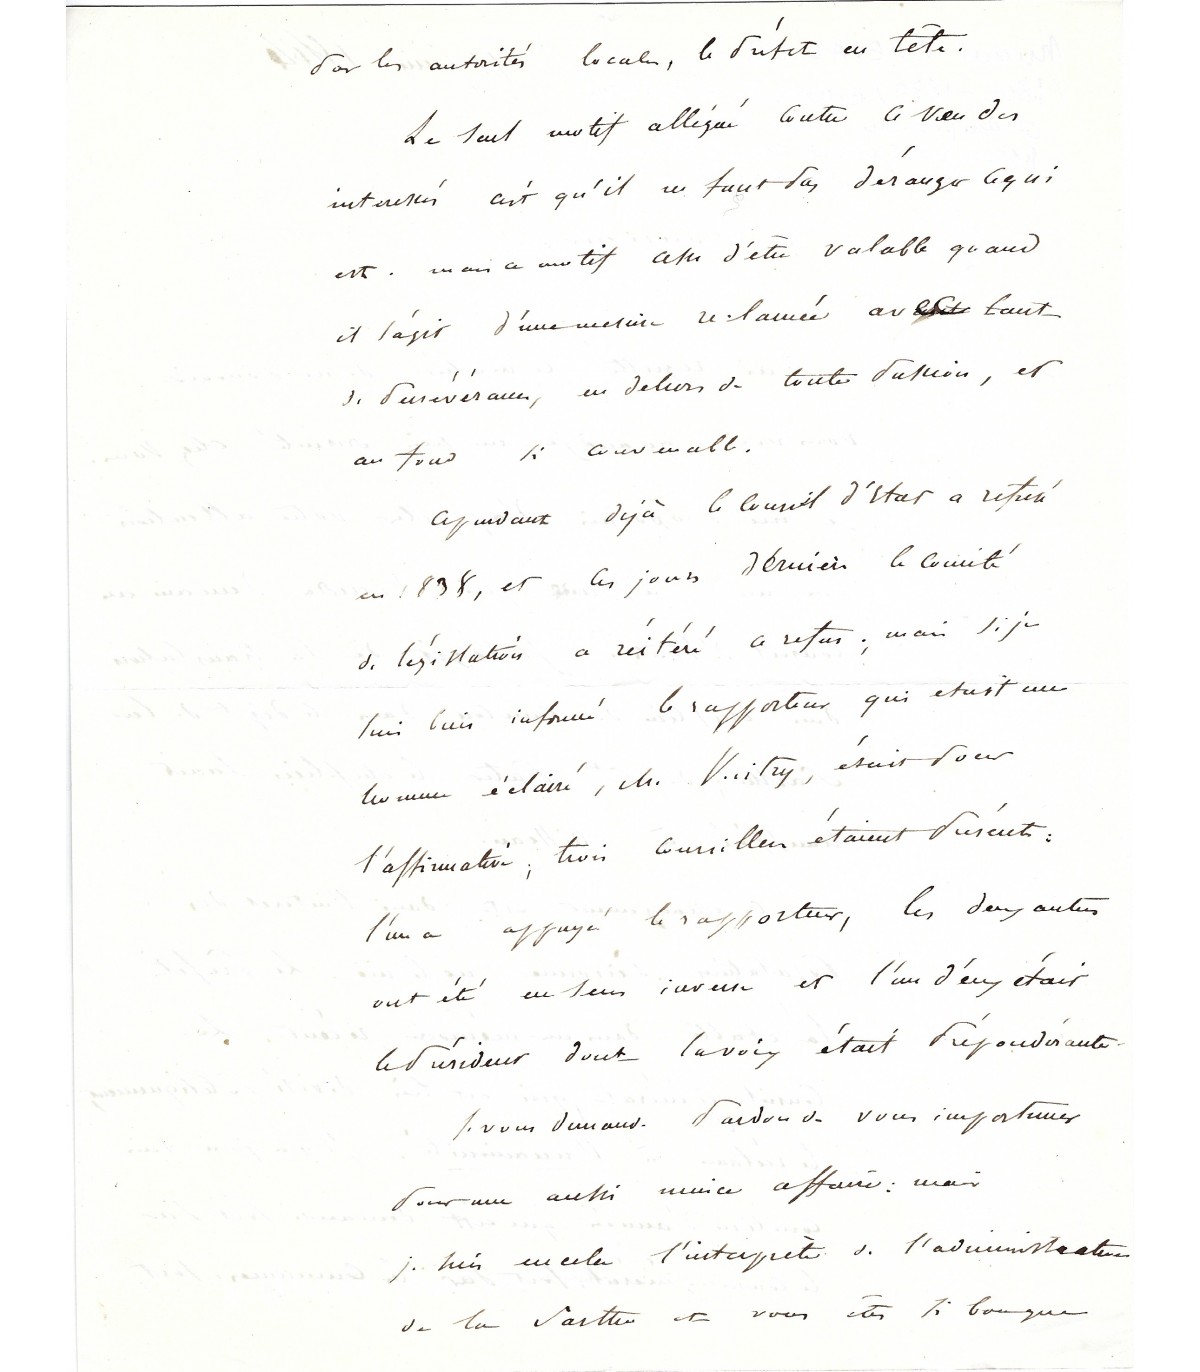 par les autorités locales, le préfet en tête.
Le seul motif allégué contre ce vœu des
interessés c'est qu'il ne faut pas déranger ce qui
est. mais ce motif cesse d'être valable quand
il s'agit d'une mesure réclamée avec tant
de persévérance, en dehors de toute passion, et
au fond si convenable.
cependant déjà le Conseil d'État a refusé
en 1838, et ces jours derniers le comité
de législation a réitéré ce refus; mais si je
suis bien informé le rapporteur qui etait un
homme éclairé, M. Vuitry, était pour
l'affirmative; trois conseillers étaient présents:
l'un a appuyé le rapporteur, les deux autres
ont été en sens inverse et l'un d'eux était
le président dont la voix était prépondérante.
Je vous demande pardon de vous importuner
pour une aussi mince affaire: mais
je suis en cela l'interprète de l'administration
de la Sarthe et vous êtes si bon que